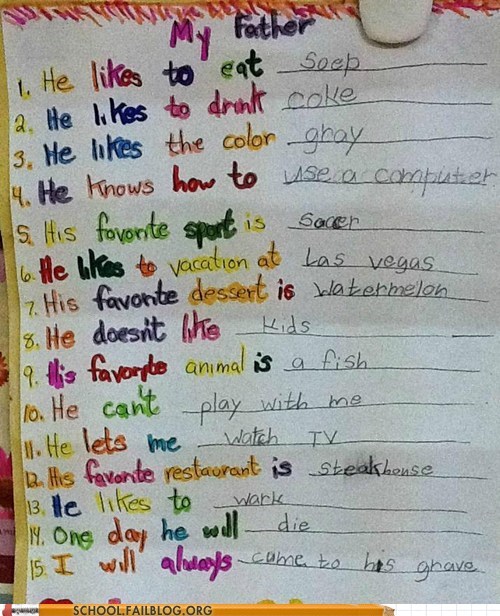 My Father
1. He likes to eat soep
2. He likes to drink coke
3. He likes the color gray
4. He knows how to use a computer
5. His favorite sport is socer
6. He likes to vacation at Las vegas
7. His favorite dessert is Watermelon
8. He doesn't like kids
9. His favorite animal is a fish
10. He can't play with me
11. He lets me watch TV
12. His favorite restaurant is steakhouse
13. He likes to wark
14. One day he will die
15. I will always came to his grave
SCHOOL.FAILBLOG.ORG